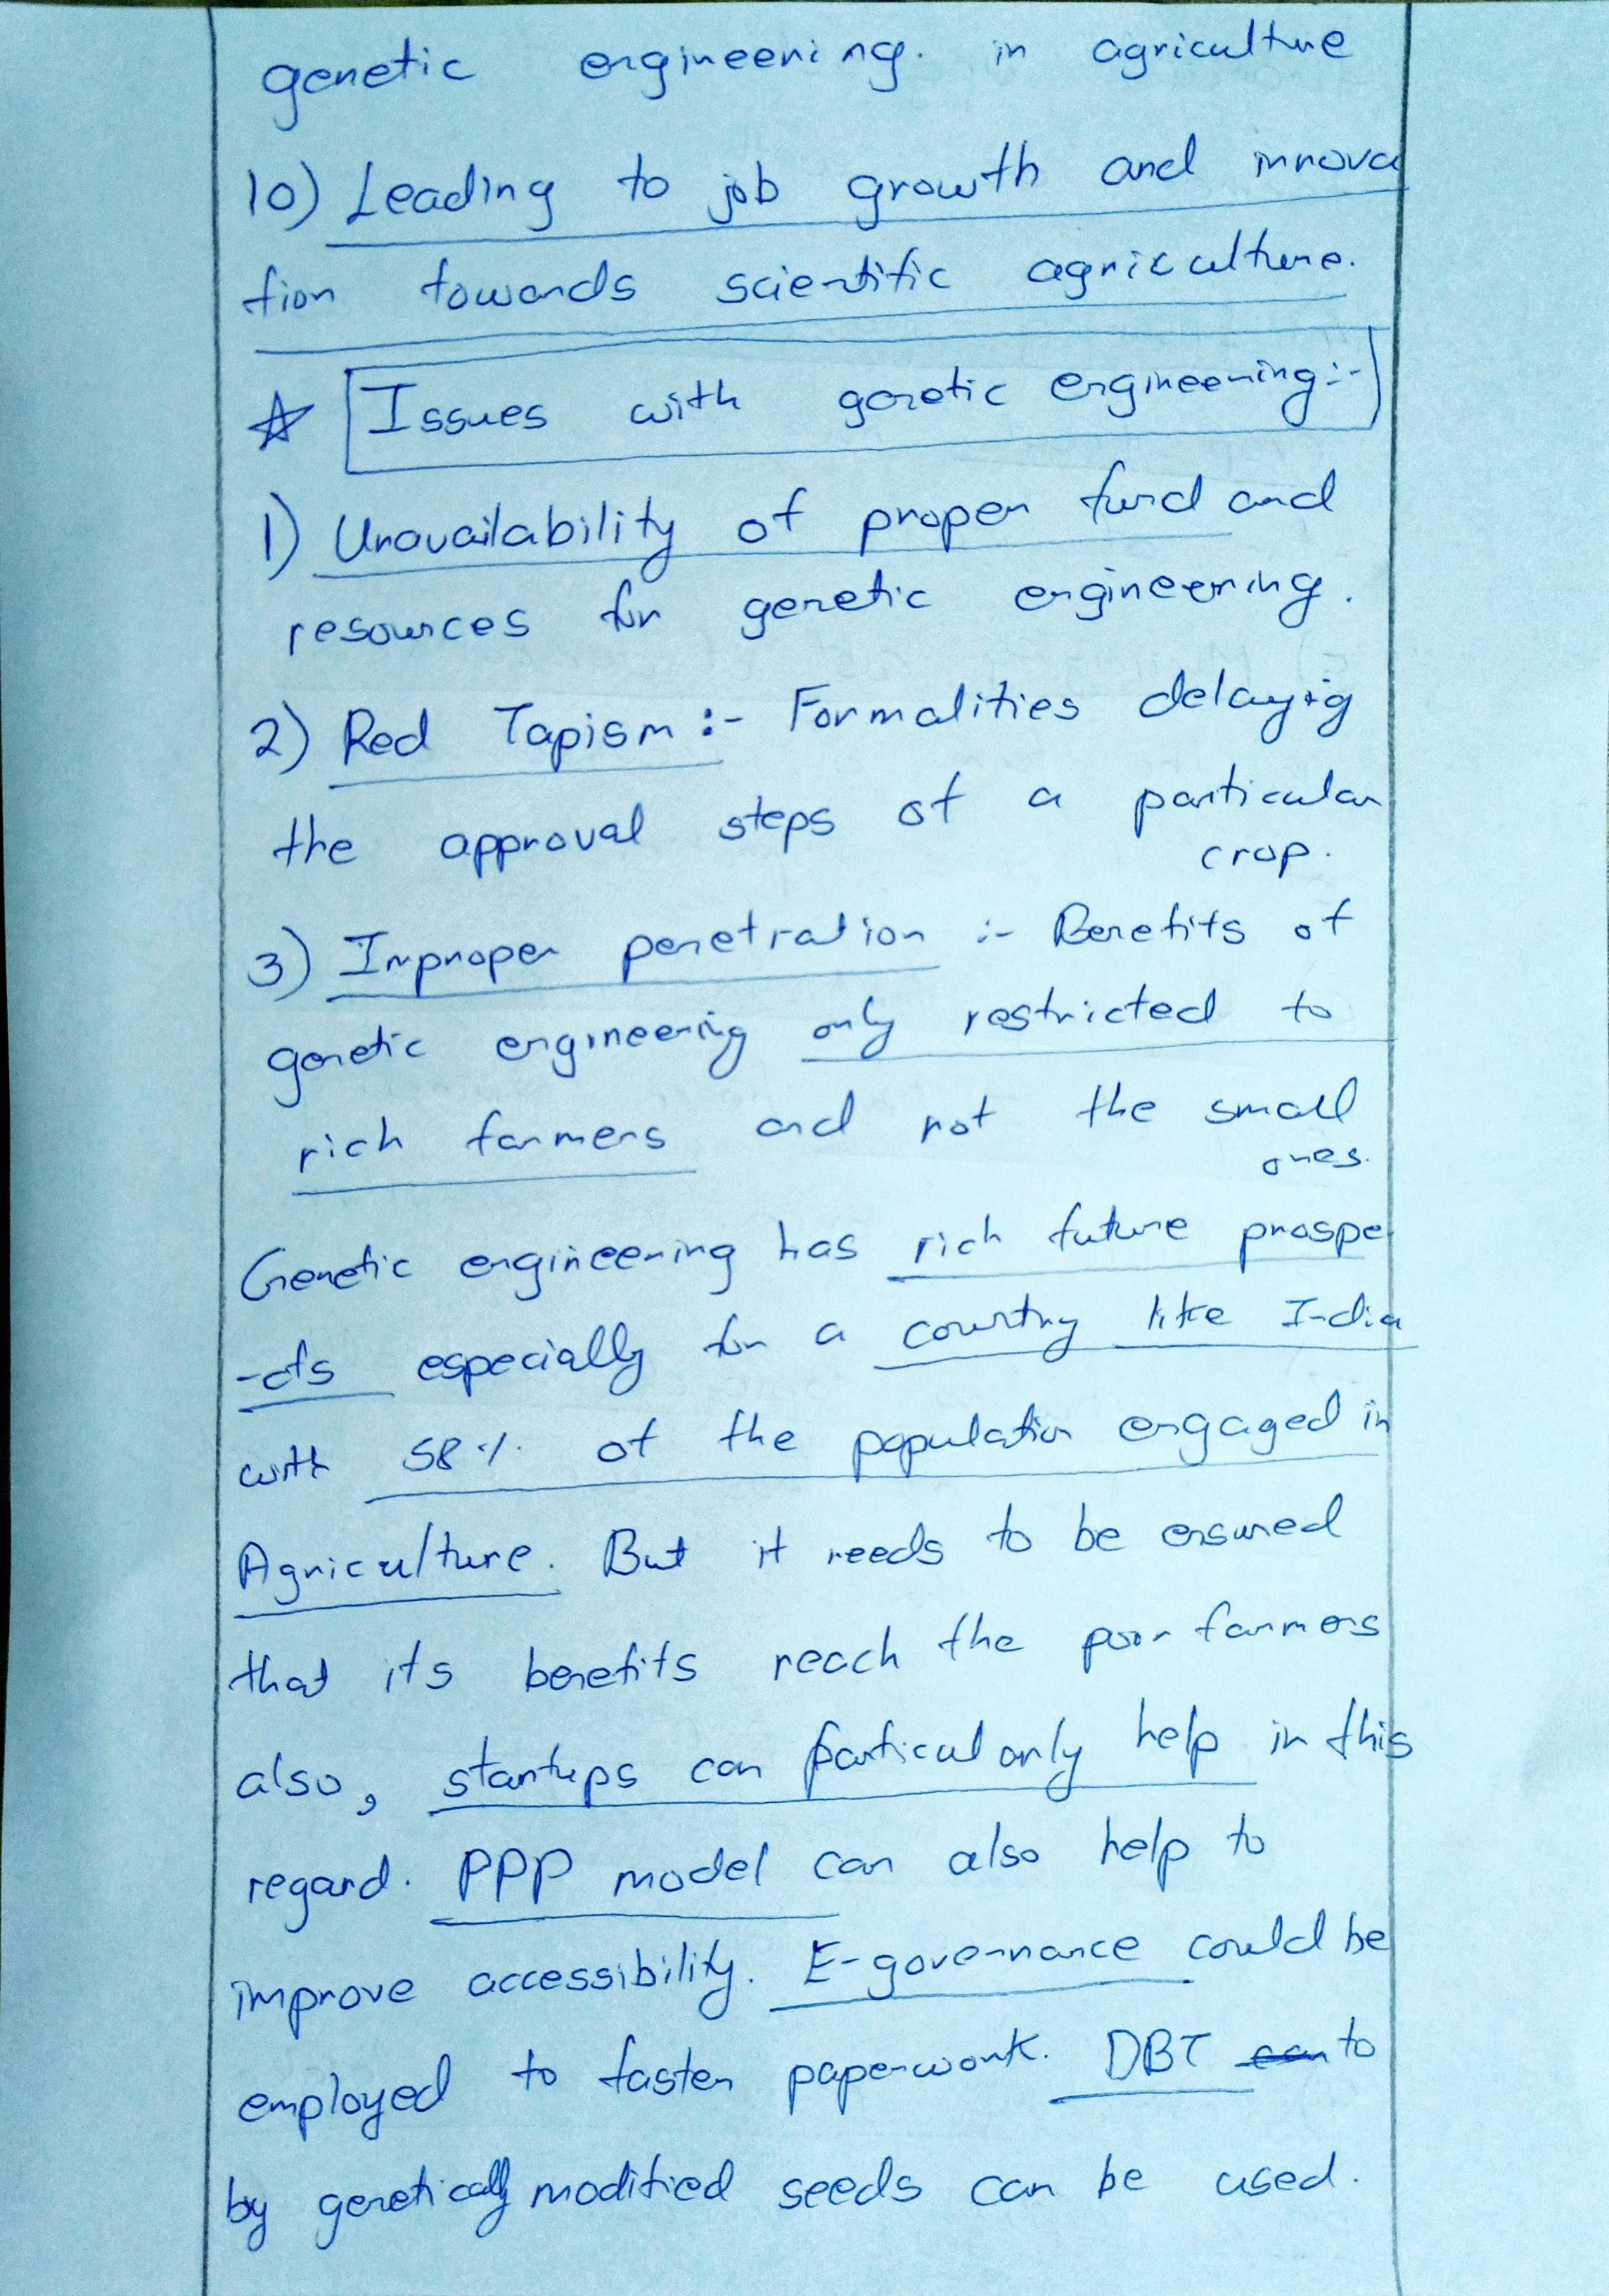 genetic engineering. in agriculture
10) Leading to job growth and innova
tion towards scientific agriculture.
☆ Issues with genetic engineering:-
1) Unavailability of proper fund and
resources for genetic engineering.
2) Red Tapism :- Formalities delaying
the approval steps of a particular
crop.
3) Improper penetration :- Benefits of
genetic engineering only restricted to
rich farmers and not the small
ones.
Genetic engineering has rich future prospe
-cts especially for a country like India
with 58% of the population engaged in
Agriculture. But it needs to be ensured
that its benefits reach the poor farmers
also, startups can particularly help in this
regard. PPP model can also help to
improve accessibility. E-governance could be
employed to faster paperwork. DBT can to
by genetically modified seeds can be used.